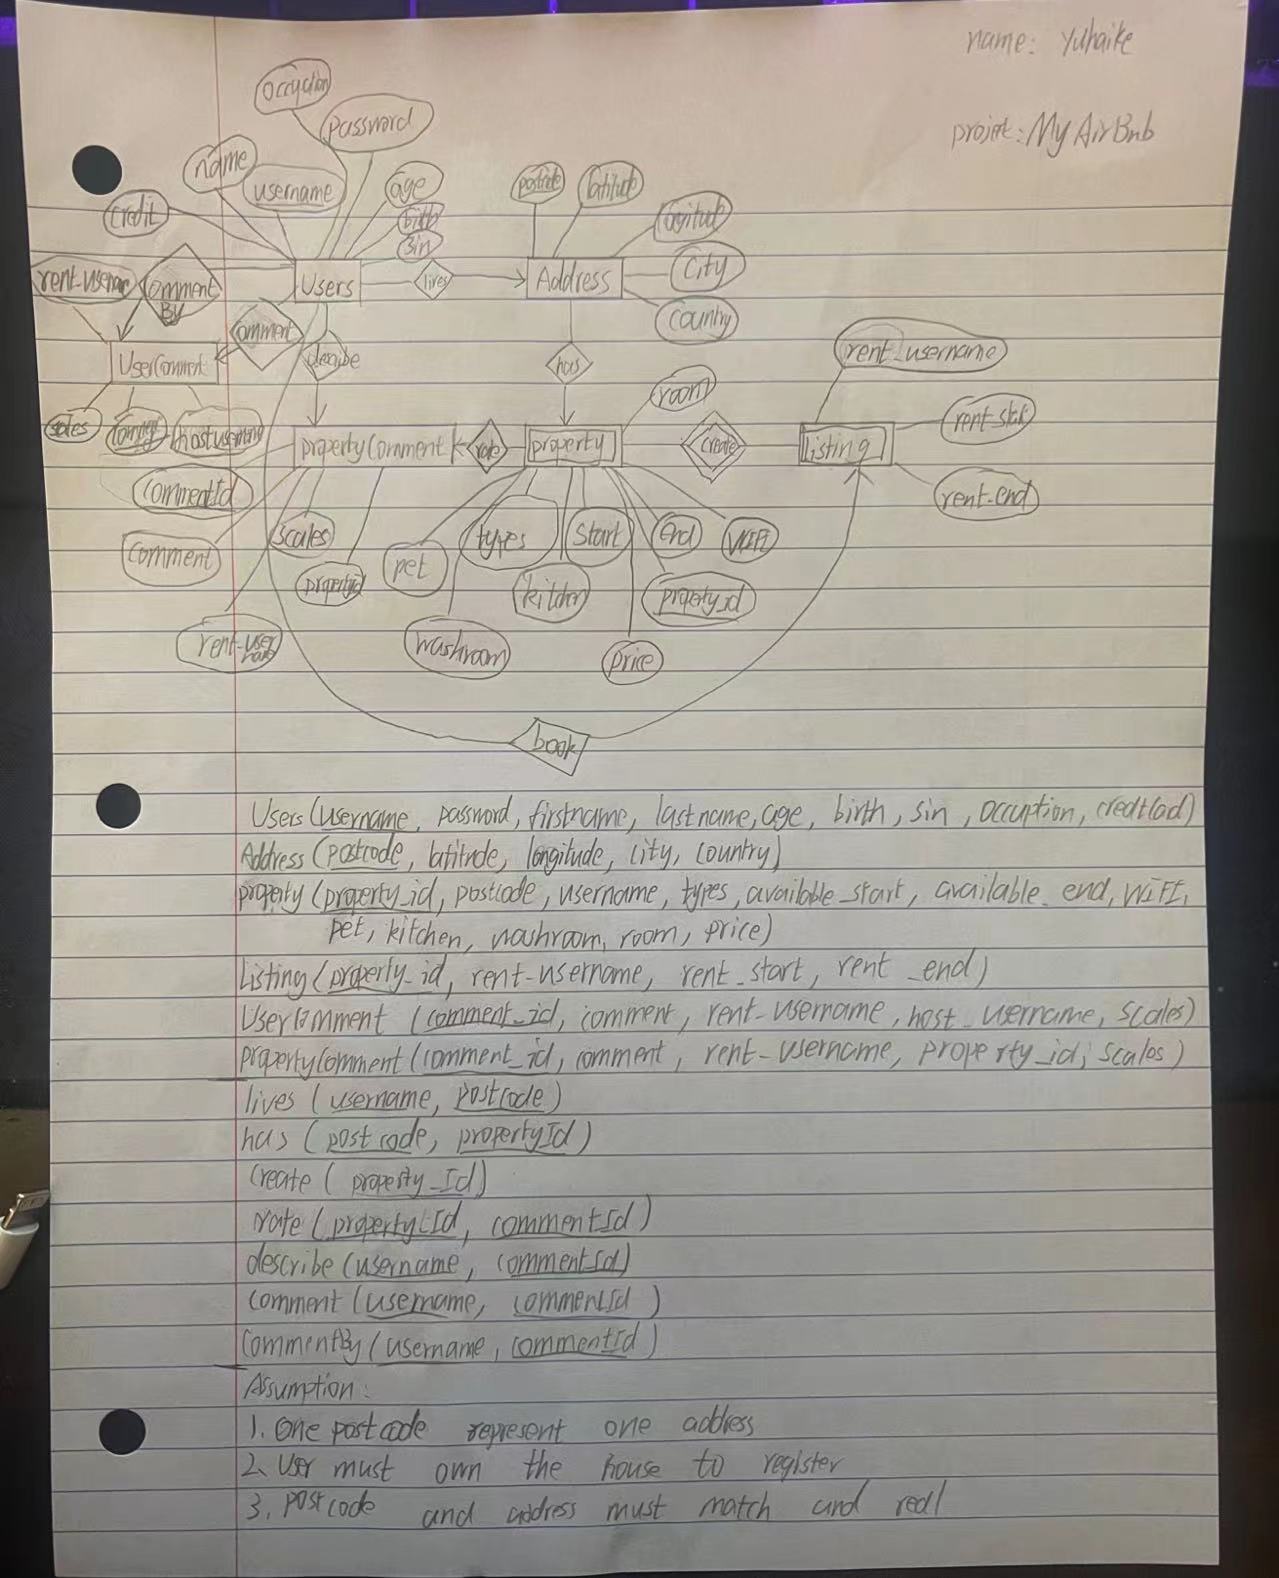 name: Yuhaike
project: My AirBnb
occuption
password
name
username
age
birth
sin
credit
postcode
latitude
longitude
City
Country
rent-username
Comment
By
Users
lives
Address
Comment
describe
has
rent_username
UserComment
room
scales
hostusername
propertyComment
rate
property
create
listing
rent-start
rent-end
commentId
comment
scales
propertyid
pet
types
start
end
WIFI
kitchen
property_id
rent-user
name
washroom
price
book
Users (username, password, firstname, lastname, age, birth, sin, occuption, creditCad)
Address (postcode, latitude, longitude, city, country)
property (property_id, postcode, username, types, available_start, available_end, WIFI,
pet, kitchen, washroom, room, price)
listing (property_id, rent-username, rent_start, rent_end)
UserComment (comment_id, comment, rent-username, host_username, scales)
propertyComment (comment_id, comment, rent-username, property_id, scales)
lives (username, postcode)
has (postcode, propertyId)
create (property_Id)
rate (property_Id, commentId)
describe (username, commentId)
comment (username, commentId)
CommentBy (username, commentId)
Assumption:
1. One postcode represent one address
2. User must own the house to register
3. postcode and address must match and real